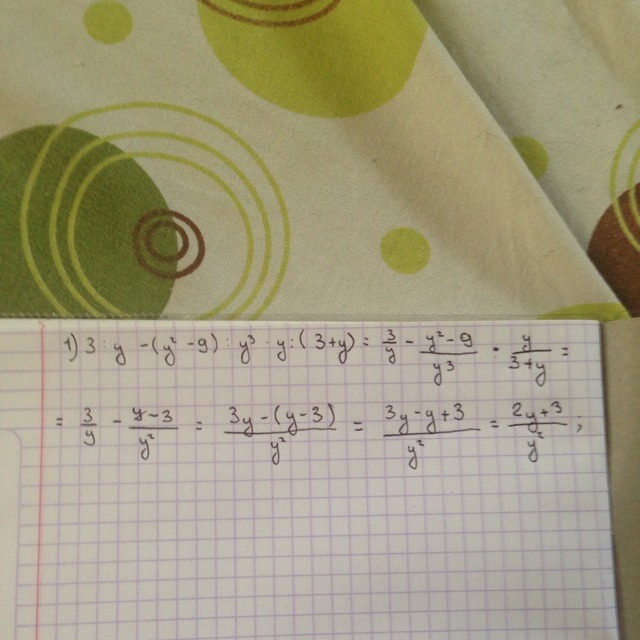 1) 3 : y - (y² - 9) : y³ · y : (3+y) = 3/y - (y² - 9)/y³ · y/(3+y) =
= 3/y - (y-3)/y² = (3y-(y-3))/y² = (3y-y+3)/y² = (2y+3)/y² ;